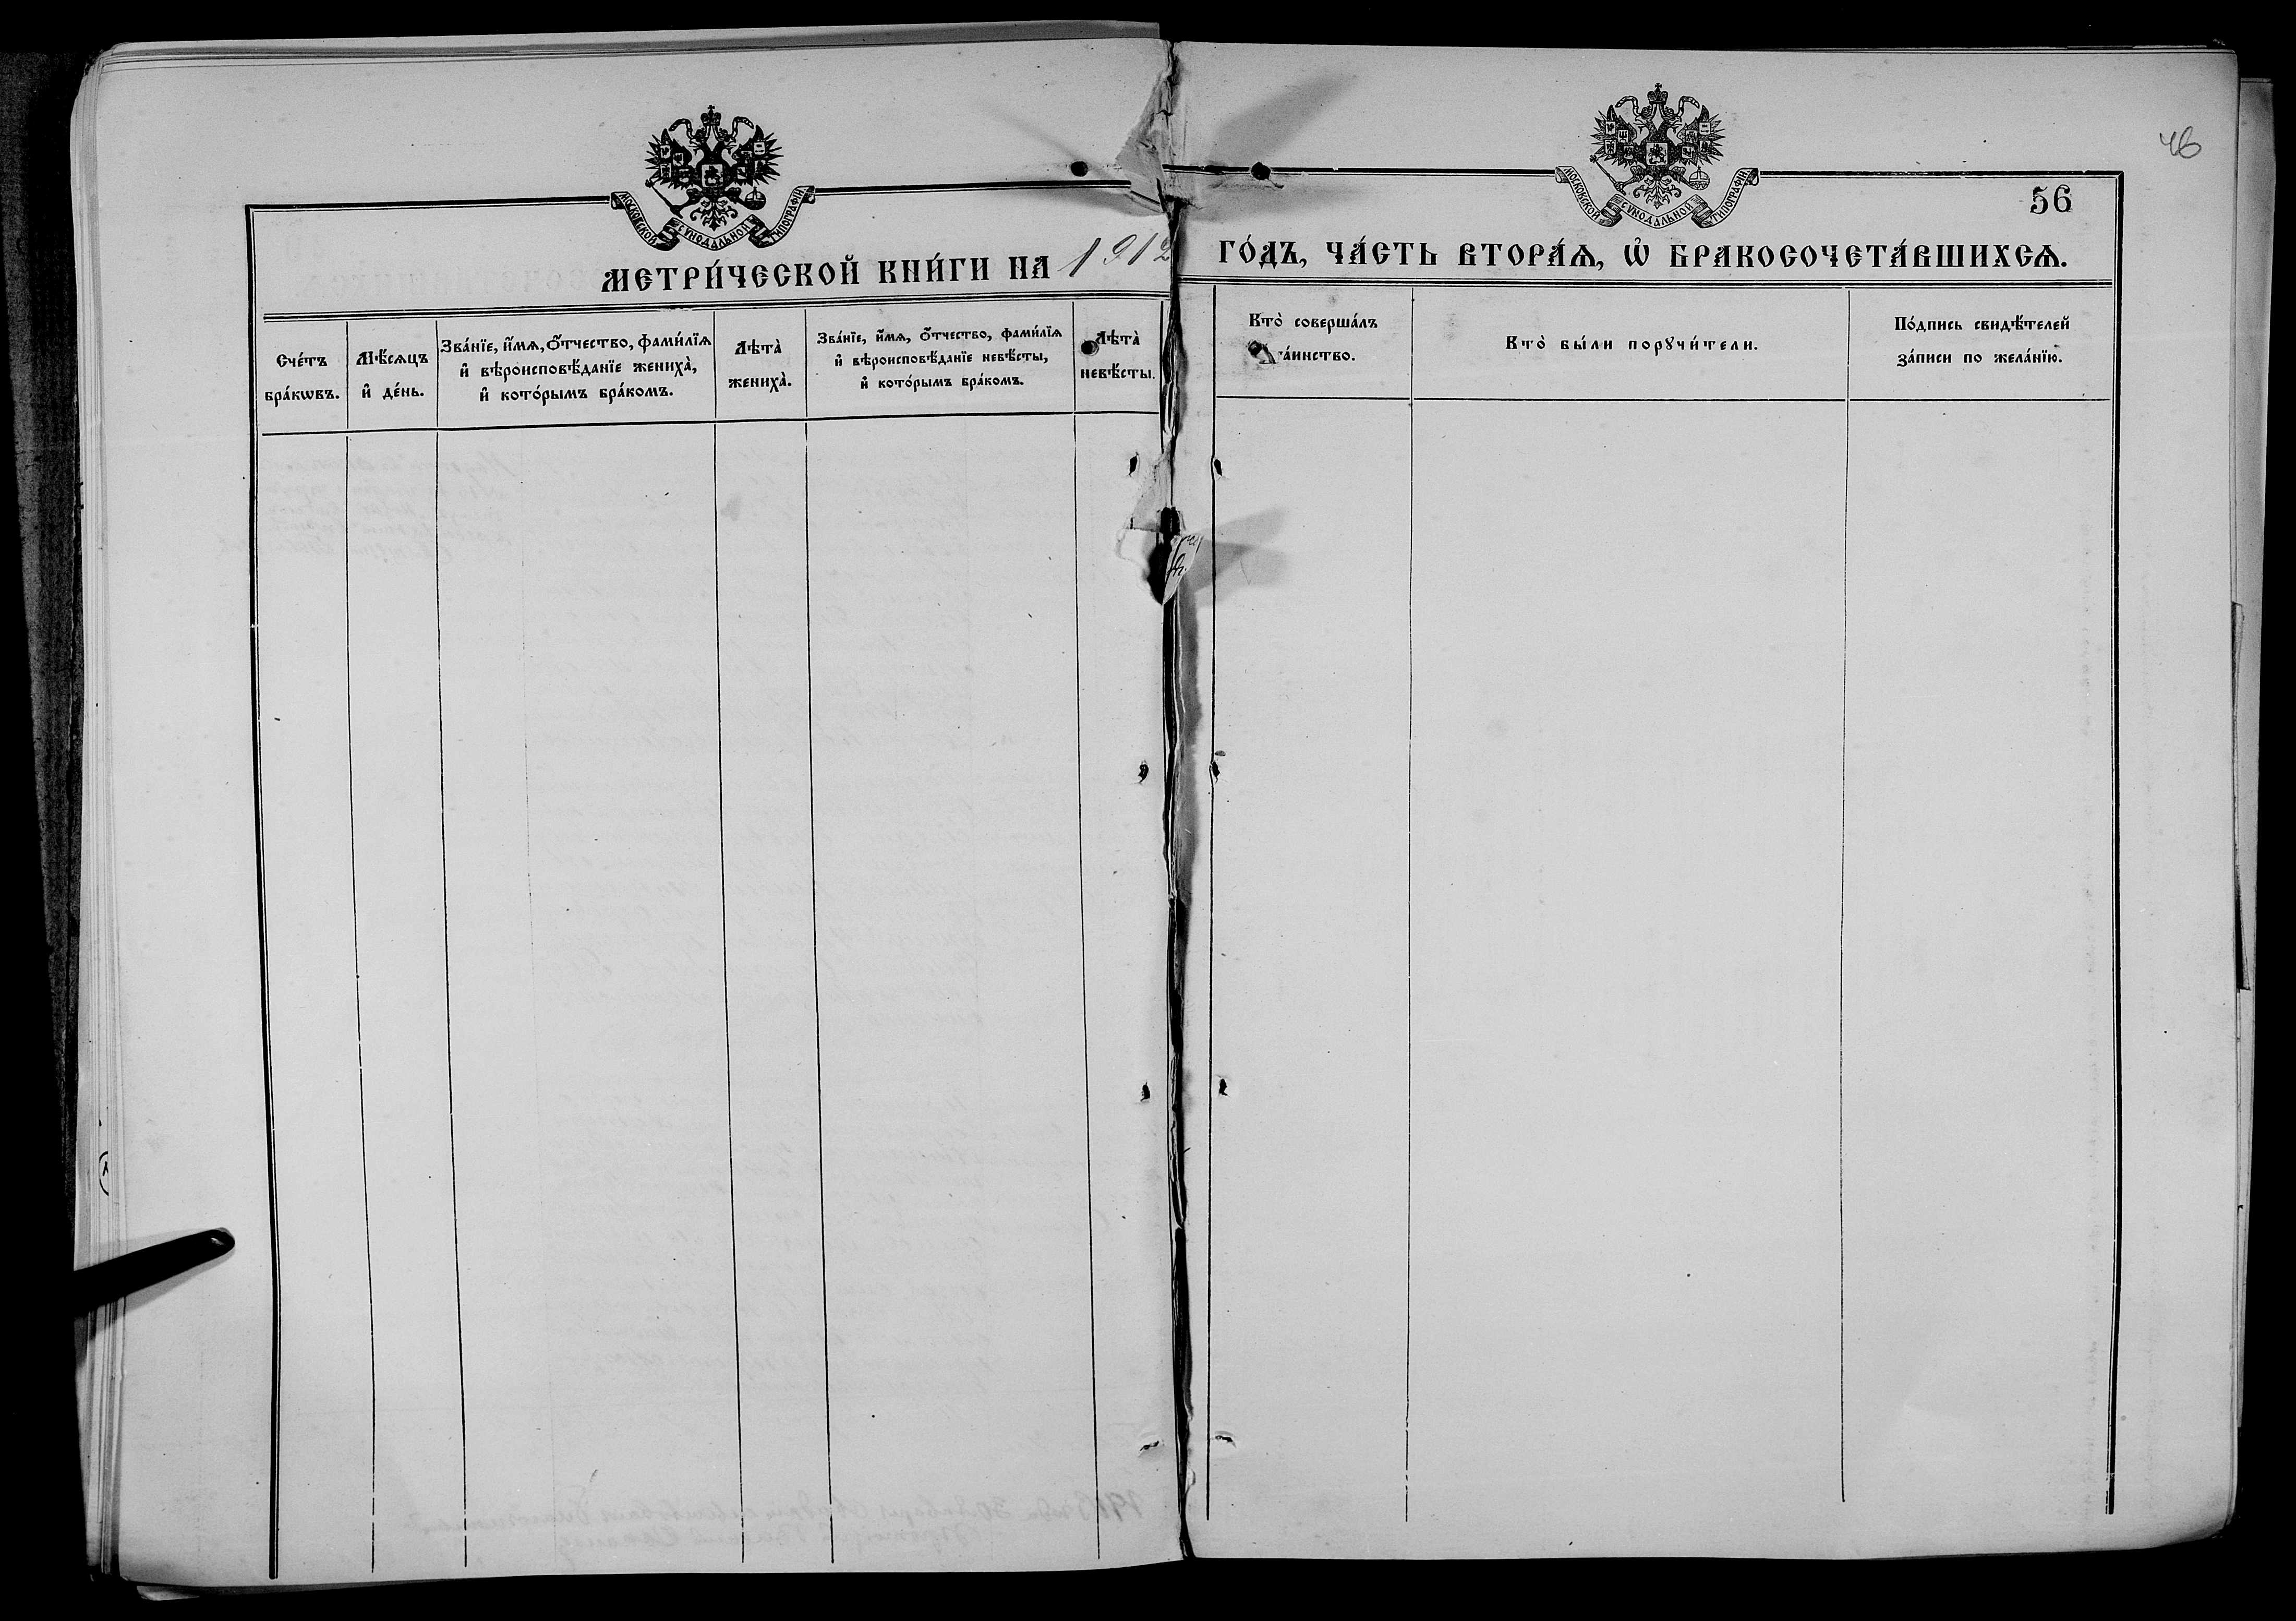 46
56
МОСКОВСКОЙ СѴНОДАЛЬНОЙ ТИПОГРАФІИ
МОСКОВСКОЙ СѴНОДАЛЬНОЙ ТИПОГРАФІИ
МЕТРИ́ЧЕСКОЙ КНИ́ГИ НА 1912 ГО́ДЪ, ЧА́СТЬ ВТОРА́Ѧ, Ѽ БРАКОСОЧЕТА́ВШИХСѦ.
Сче́тъ
бра́кѡвъ.
Мѣ́сяцъ
и҆ де́нь.
Зва́нїе, и҆́мѧ, ѻ҆́тчество, фами́лїѧ
и҆ вѣроисповѣ́данїе женихà,
и҆ кото́рымъ бра́комъ.
Лѣтà
женихà.
Зва́нїе, и҆́мѧ, ѻ҆́тчество, фами́лїѧ
и҆ вѣроисповѣ́данїе невѣ́сты,
и҆ кото́рымъ бра́комъ.
Лѣтà
невѣ́сты.
Кто̀ соверша́лъ
та́инство.
Кто̀ бы́ли порꙋчи́тели.
По́дпись свидѣ́телей
за́писи по жела́нїю.